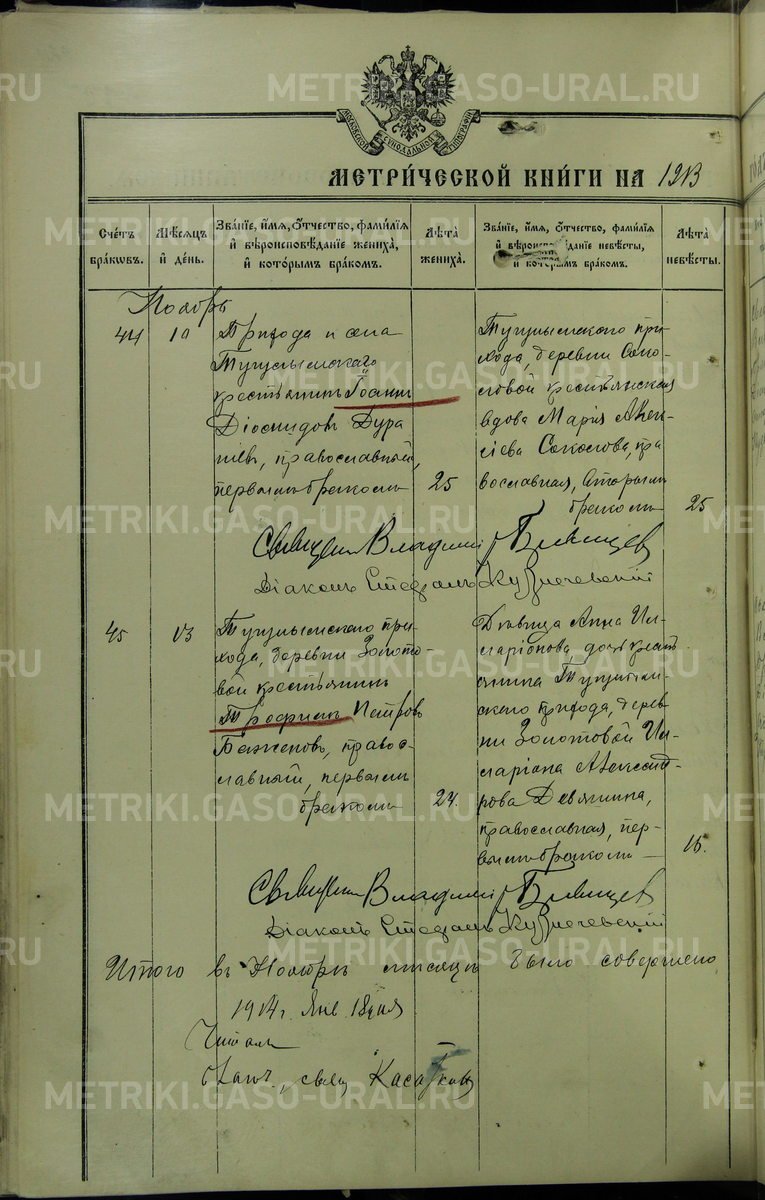 МОСКОВСКОЙ СѴНОДАЛЬНОЙ ТИПОГРАФІИ
МЕТРИ́ЧЕСКОЙ КНИ́ГИ НА 1913
Сче́тъ бра́кѡвъ.
Мѣ́сяцъ и҆ де́нь.
Зва́нїе, и҆́мѧ, ѻ҆́тчество, фами́лїѧ
и҆ вѣроисповѣ́данїе жениха̀,
и҆ кото́рымъ бра́комъ.
Лѣ́та жениха̀.
Зва́нїе, и҆́мѧ, ѻ҆́тчество, фами́лїѧ
и҆ вѣроисповѣ́данїе невѣ́сты,
и҆ кото́рымъ бра́комъ.
Лѣ́та невѣ́сты.
Ноябрь
44
10
Прихода и села
Тугулымскаго
крестьянинъ Іоаннъ
Діомидовъ Дура
невъ, православный,
первымъ бракомъ
25
Тугулымскаго при
хода, деревни Соко
ловой крестьянская
вдова Марія Алек
сіева Соколова, пра
вославная, вторымъ
бракомъ
25
Священникъ Владимі
Діаконъ Стефанъ
45
13
Тугулымскаго при
хода, деревни Золото-
вой крестьянинъ
Трофимъ Петровъ
Баженовъ, правос-
лавный, первымъ
бракомъ
24.
Дѣвица Анна Ил
ларіонова, дочь кресть
янина Тугулым
скаго прихода, дерев
ни Золотовой Ил
ларіона Александ-
рова Девятина,
православная, пер-
вымъ бракомъ —
16.
Священникъ Владимі
Діаконъ Стефанъ
Итого въ Ноябрѣ мѣсяцѣ было совершено
1914 г. Янв. 18 дня
Читалъ
Благ., свящ. Касаткинъ
METRIKI.GASO-URAL.RU